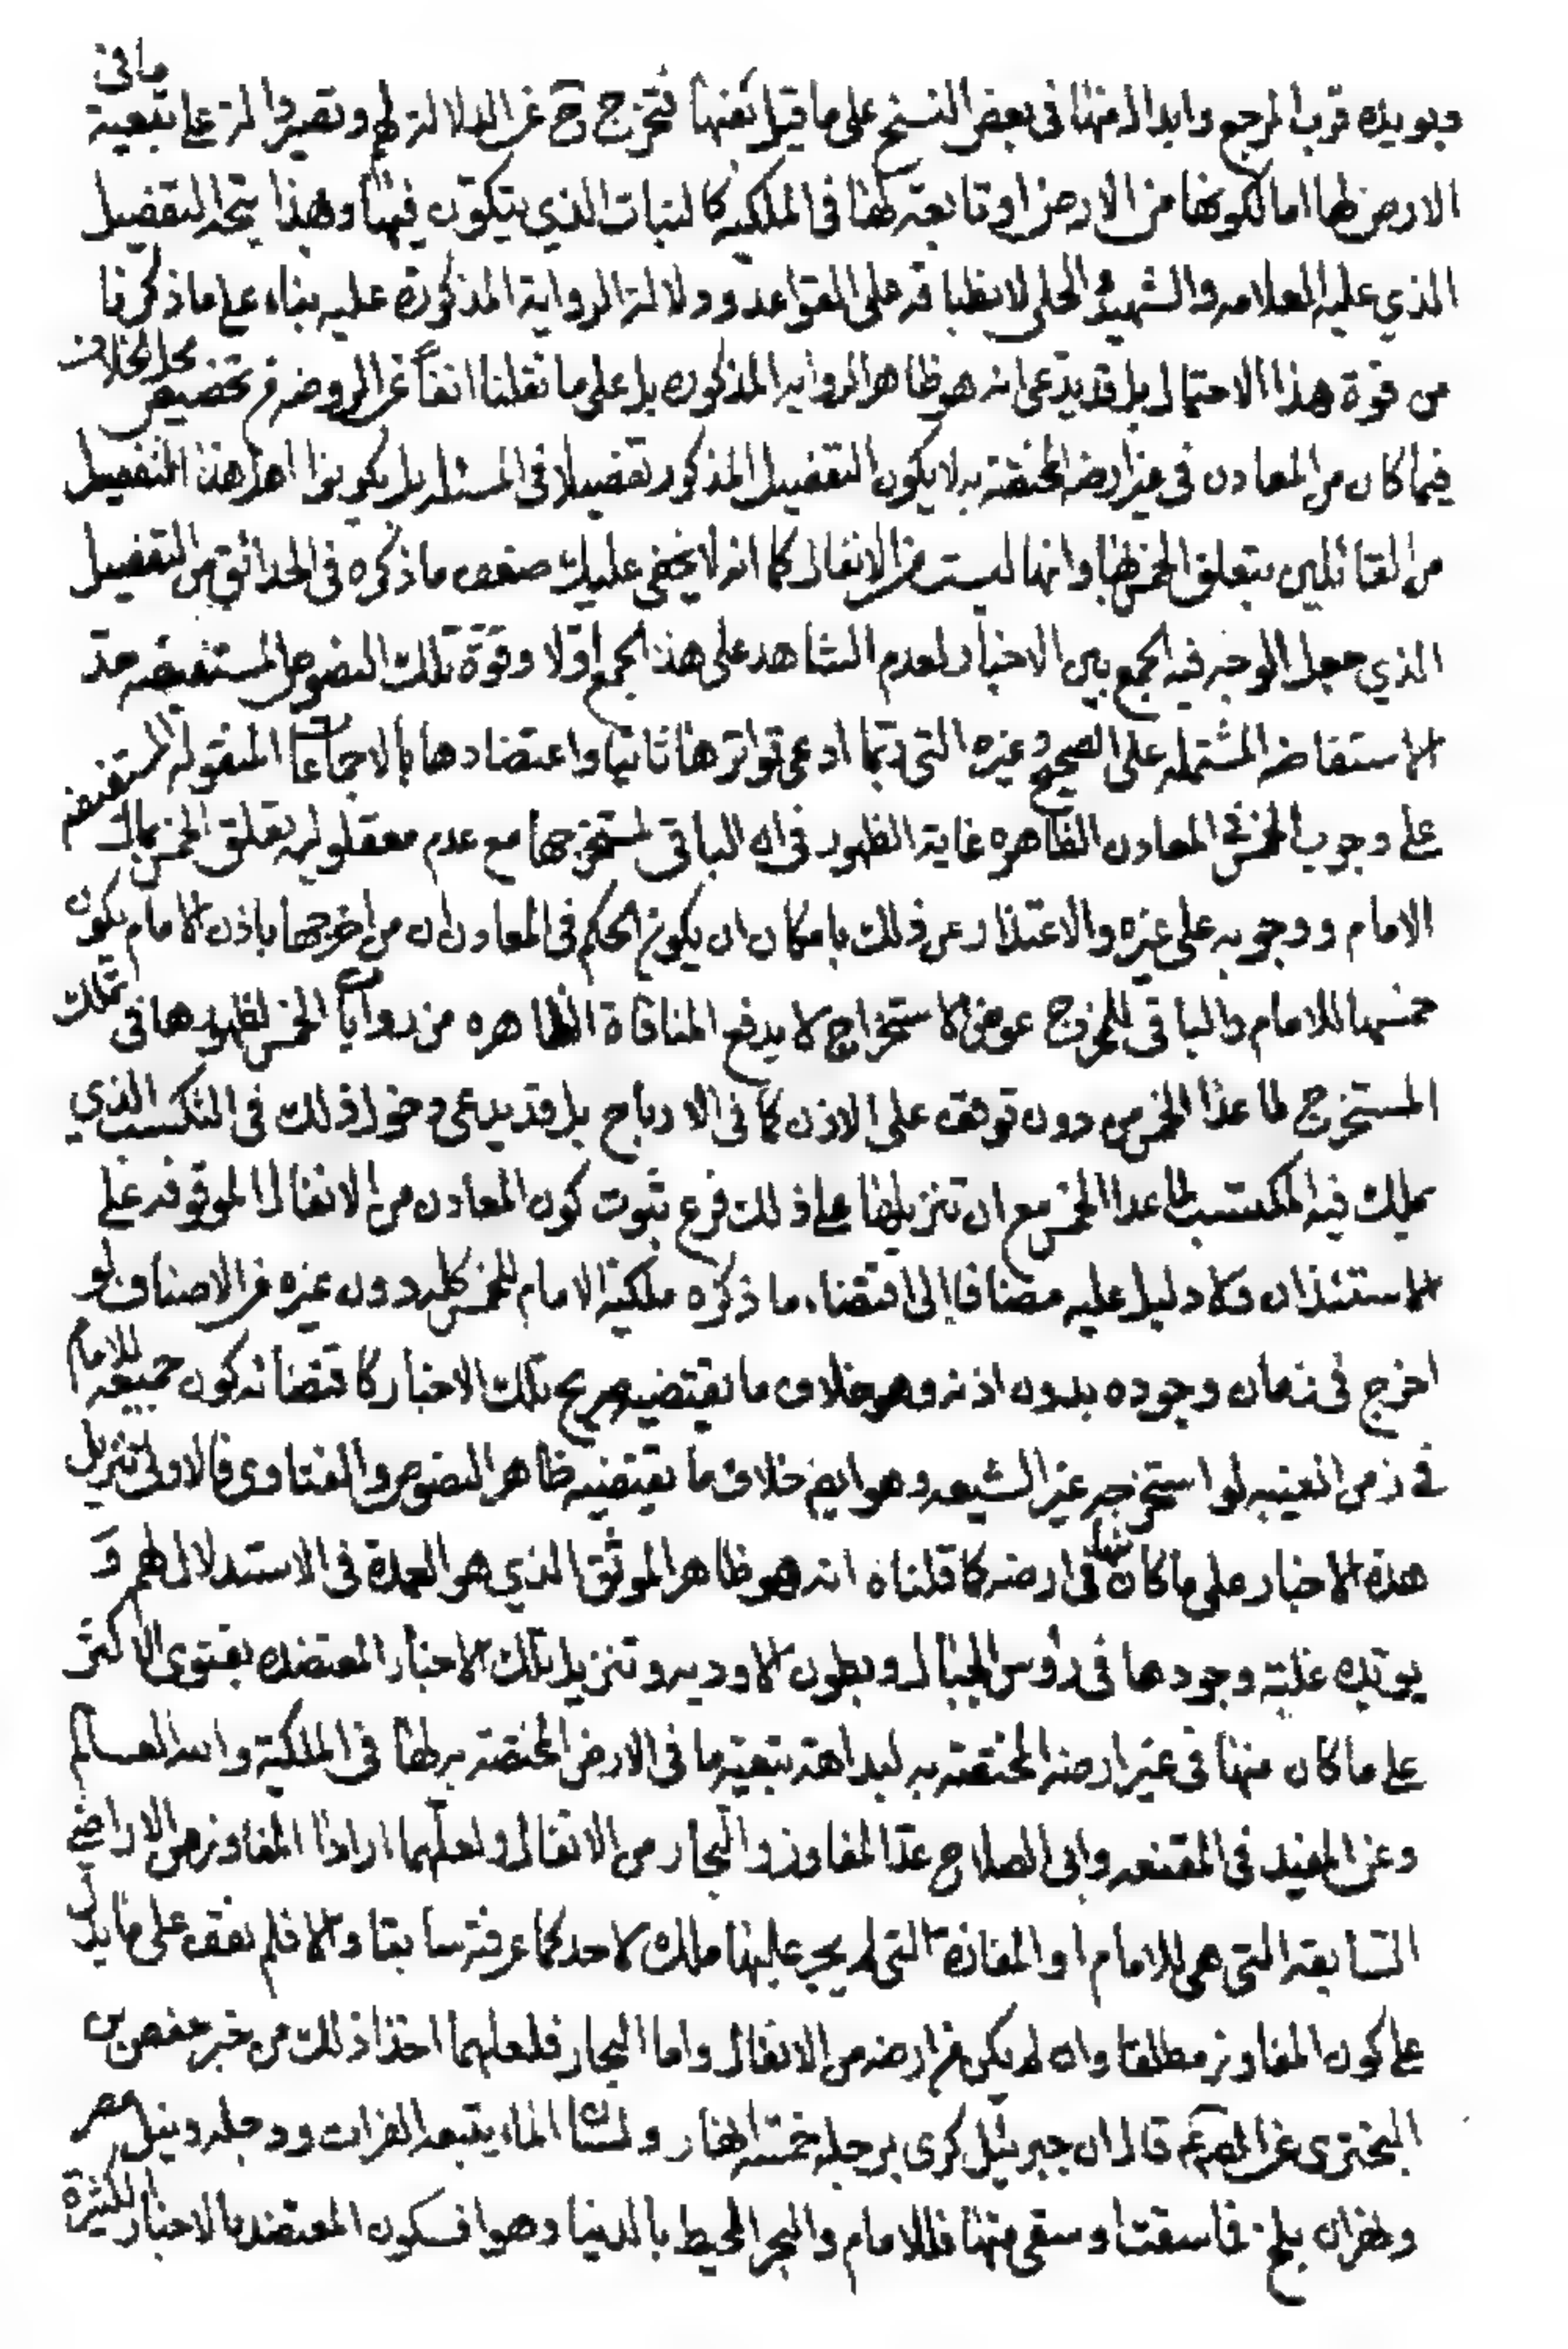 ويؤيده قرب المرجع وابدال منها في بعض النسخ على ما قيل بعنها فتخرج ح عن الدلالة لهم وتصير دالة على تبعية ما في
الارض لها اما لكونها من الارض او تابعة لها في الملكية كالنبات الذي يتكون فيها وبهذا يتجه التفصيل
الذي عليه العلامه والشهيد والحلي لانطباقه على القواعد ودلالة الرواية المذكورة عليه بناء على ما ذكرنا
من قوة هذا الاحتمال بل قد يدعى انه هو ظاهر الروايه المذكوره بل على ما نقلنا انفا عن الروضه من تخصيص محل الخلاف
فيما كان من المعادن في غير ارضه المختصه به لا يكون التفصيل المذكور تفصيلا في المسئله بل يكونوا اهل هذا التفصيل
من القائلين بتعلق الخمس بها وانها ليست من الانفال كما انه لا يخفى عليك ضعف ما ذكره في الحدائق من التفصيل
الذي جعل الوجه فيه الجمع بين الاخبار لعدم الشاهد على هذا الجمع اولا وقوة تلك النصوص المستفيضه حد
الاستفاضه المشتمله على الصحيح وغيره التي ربما ادعى تواترها ثانيا واعتضادها بالاجماعات المنقوله المستفيضه
على وجوب الخمس في المعادن الظاهره غاية الظهور في ان الباقي لمستخرجها مع عدم معقوليه تعلق الخمس بمال
الامام ووجوبه على غيره والاعتذار عن ذلك بامكان ان يكون الحكم في المعادن ان من اخرجها باذن الامام يكون
خمسها للامام والباقي للمخرج عوض الاستخراج لا يدفع المنافاة الظاهره من روايات الخمس لظهورها في تملك
المستخرج لما عدا الخمس من دون توقف على الاذن كما في الارباح بل قد يدعى دخول ذلك في التكسب الذي
يملك فيه المكتسب لما عدا الخمس مع ان تنزيلها على ذلك فرع ثبوت كون المعادن من الانفال الموقوفه على
الاستئذان ولا دليل عليه مضافا الى اقتضاء ما ذكره ملكية الامام للخمس كله دون غيره من الاصناف لو
اخرج في زمان وجوده بدون اذنه وهو خلاف ما يقتضيه صريح تلك الاخبار كاقتضائه كون جميعه للامام
في زمن الغيبه لو استخرجه غير الشيعه وهو ايض خلاف ما يقتضيه ظاهر النصوص والفتاوى فالاولى تنزيل
هذه الاخبار على ما كان منها في ارضه كما قلناه انه هو ظاهر الموثق الذي هو العمدة في الاستدلال لهم و
يؤيده غلبة وجودها في رؤس الجبال وبطون الاوديه وتنزيل تلك الاخبار المعتضده بفتوى الاكثر
على ما كان منها في غير ارضه المختصه به لبداهة تبعية ما في الارض المختصه به لها في الملكية والله العالم
وعن المفيد في المقنعه وابي الصلاح عد المفاوز والبحار من الانفال ولعلهما ارادا المفاوز من الاراضي
السابقه التي هي للامام او المفازة التي لم يجر عليها ملك لاحد كما عرفته سابقا والا فلم نقف على ما يدل
على كون المفاوز مطلقا وان لم يكن من ارضه من الانفال واما البحار فلعلهما اخذا ذلك من خبر حفص بن
البختري عن الصم قال ان جبرئيل كرى برجله خمسة انهار ولسان الماء يتبعه الفرات ودجله ونيل مصر
ومهران بلخ فما سقت او سقي منها فللامام والبحر المحيط بالدنيا وهو افسكون المعتضد بالاخبار الكثيرة